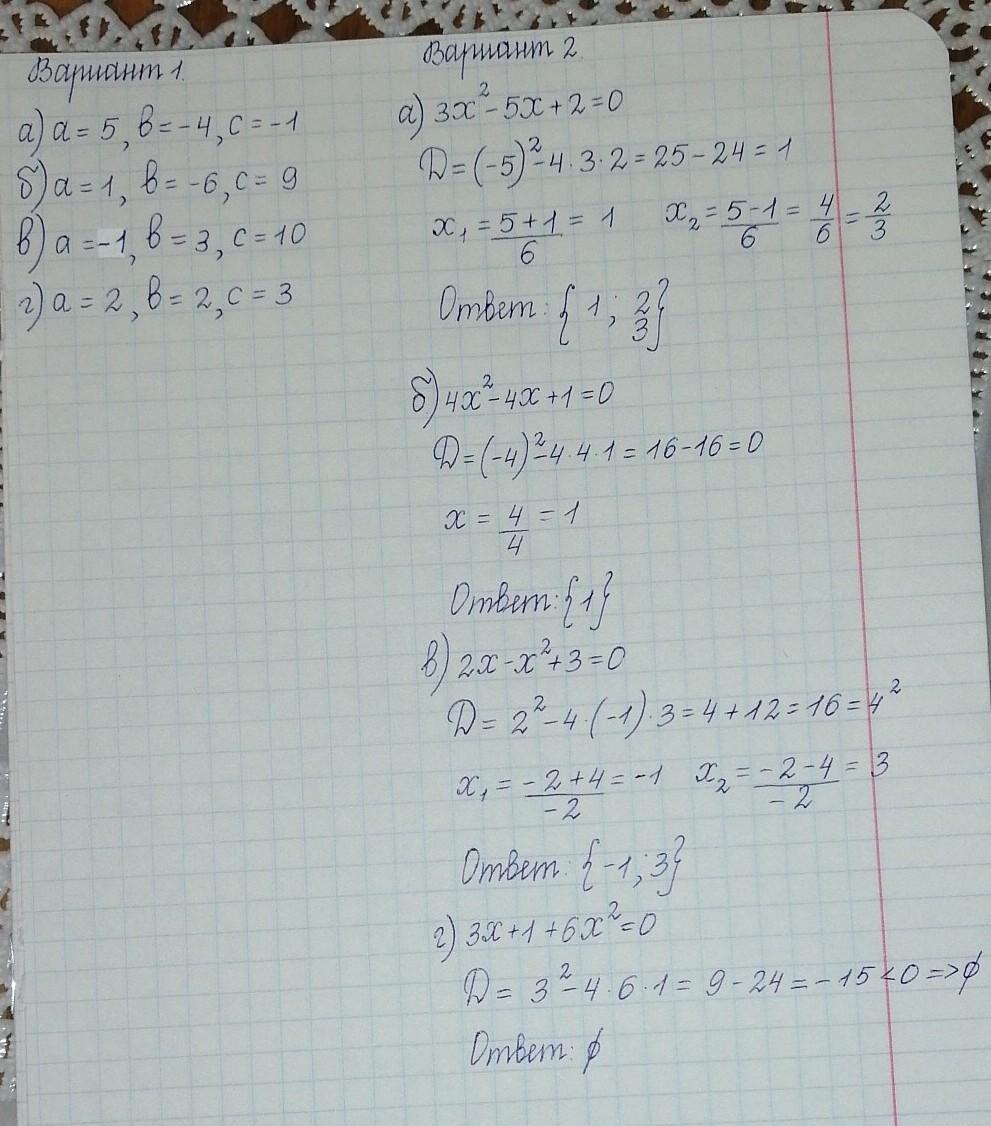 Вариант 1.
а) a = 5, в = -4, c = -1
б) a = 1, в = -6, c = 9
в) a = -1, в = 3, c = 10
г) a = 2, в = 2, c = 3
Вариант 2
а) 3x² - 5x + 2 = 0
D = (-5)² - 4 · 3 · 2 = 25 - 24 = 1
x₁ = (5 + 1)/6 = 1 x₂ = (5 - 1)/6 = 4/6 = 2/3
Ответ: {1; 2/3}
б) 4x² - 4x + 1 = 0
D = (-4)² - 4 · 4 · 1 = 16 - 16 = 0
x = 4/4 = 1
Ответ: {1}
в) 2x - x² + 3 = 0
D = 2² - 4 · (-1) · 3 = 4 + 12 = 16 = 4²
x₁ = (-2 + 4)/-2 = -1 x₂ = (-2 - 4)/-2 = 3
Ответ: {-1; 3}
г) 3x + 1 + 6x² = 0
D = 3² - 4 · 6 · 1 = 9 - 24 = -15 < 0 => ∅
Ответ: ∅